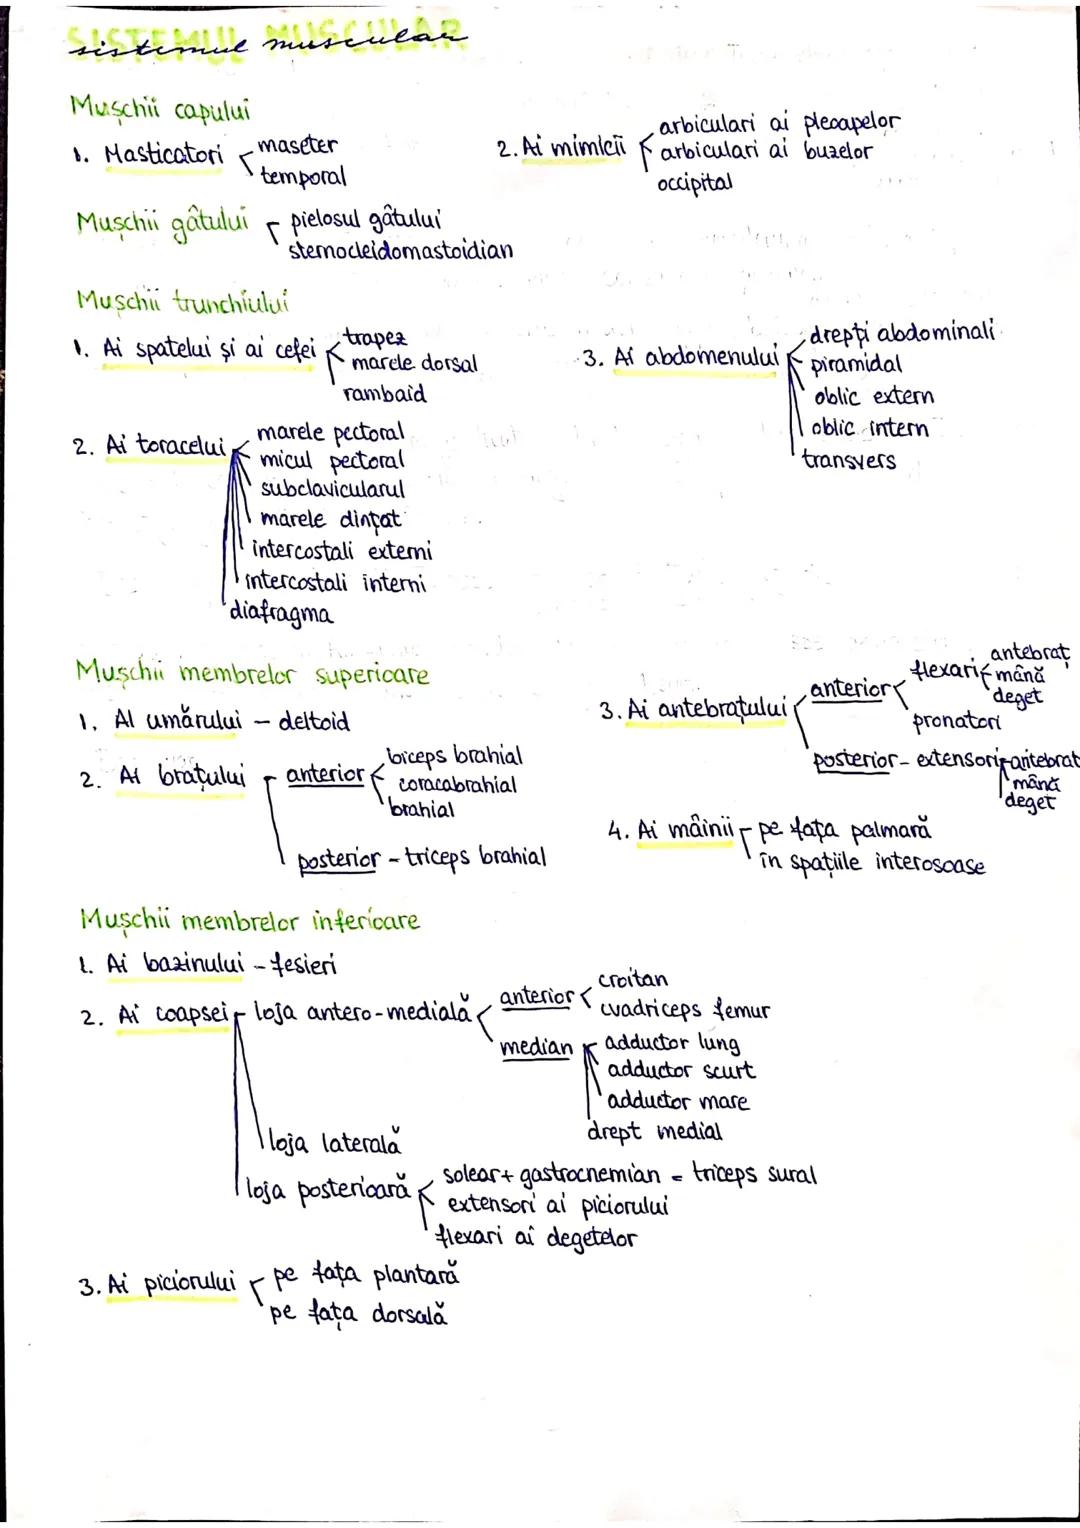 SISTEMUL MUSCULAR
sistemul muscular
Muşchii capului
1. Masticatori
maseter
temporal
2. Ai mimicii
arbiculari ai pleoapelor
arbiculari ai buzelor
occipital
Muşchii gâtului
pielosul gâtului
sternocleidomastoidian
Muşchii trunchiului
1. Ai spatelui şi ai cefei
trapez
marele dorsal
rambaid
2. Ai toracelui
marele pectoral
micul pectoral
subclavicularul
marele dinţat
intercostali externi
intercostali interni
diafragma
3. Ai abdomenului
drepţi abdominali
piramidal
oblic extern
oblic intern
transvers
Muşchii membrelor superioare
1. Al umărului – deltoid
2. Ai braţului
anterior
biceps brahial
coracabrahial
brahial
posterior – triceps brahial
3. Ai antebraţului
anterior
flexari
antebraţ
mână
deget
pronatori
posterior – extensori
antebrat
mână
deget
4. Ai mâinii
pe faţa palmară
în spaţiile interosoase
Muşchii membrelor inferioare
1. Ai bazinului – fesieri
2. Ai coapsei
loja antero-medială
anterior
croitan
cvadriceps femur
median
adductor lung
adductor scurt
adductor mare
drept medial
loja laterală
loja posterioară
solear + gastrocnemian = triceps sural
extensori ai piciorului
flexari ai degetelor
3. Ai piciorului
pe faţa plantară
pe faţa dorsală